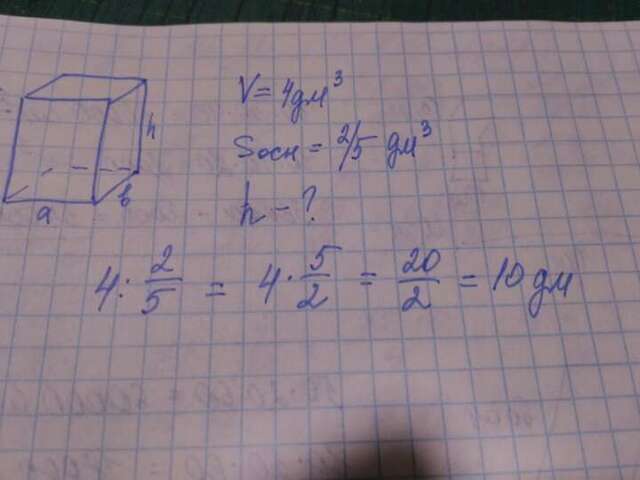 V = 4дм³
Sосн = 2/5 дм³
h
h - ?
a
b
4 : 2/5 = 4 · 5/2 = 20/2 = 10 дм